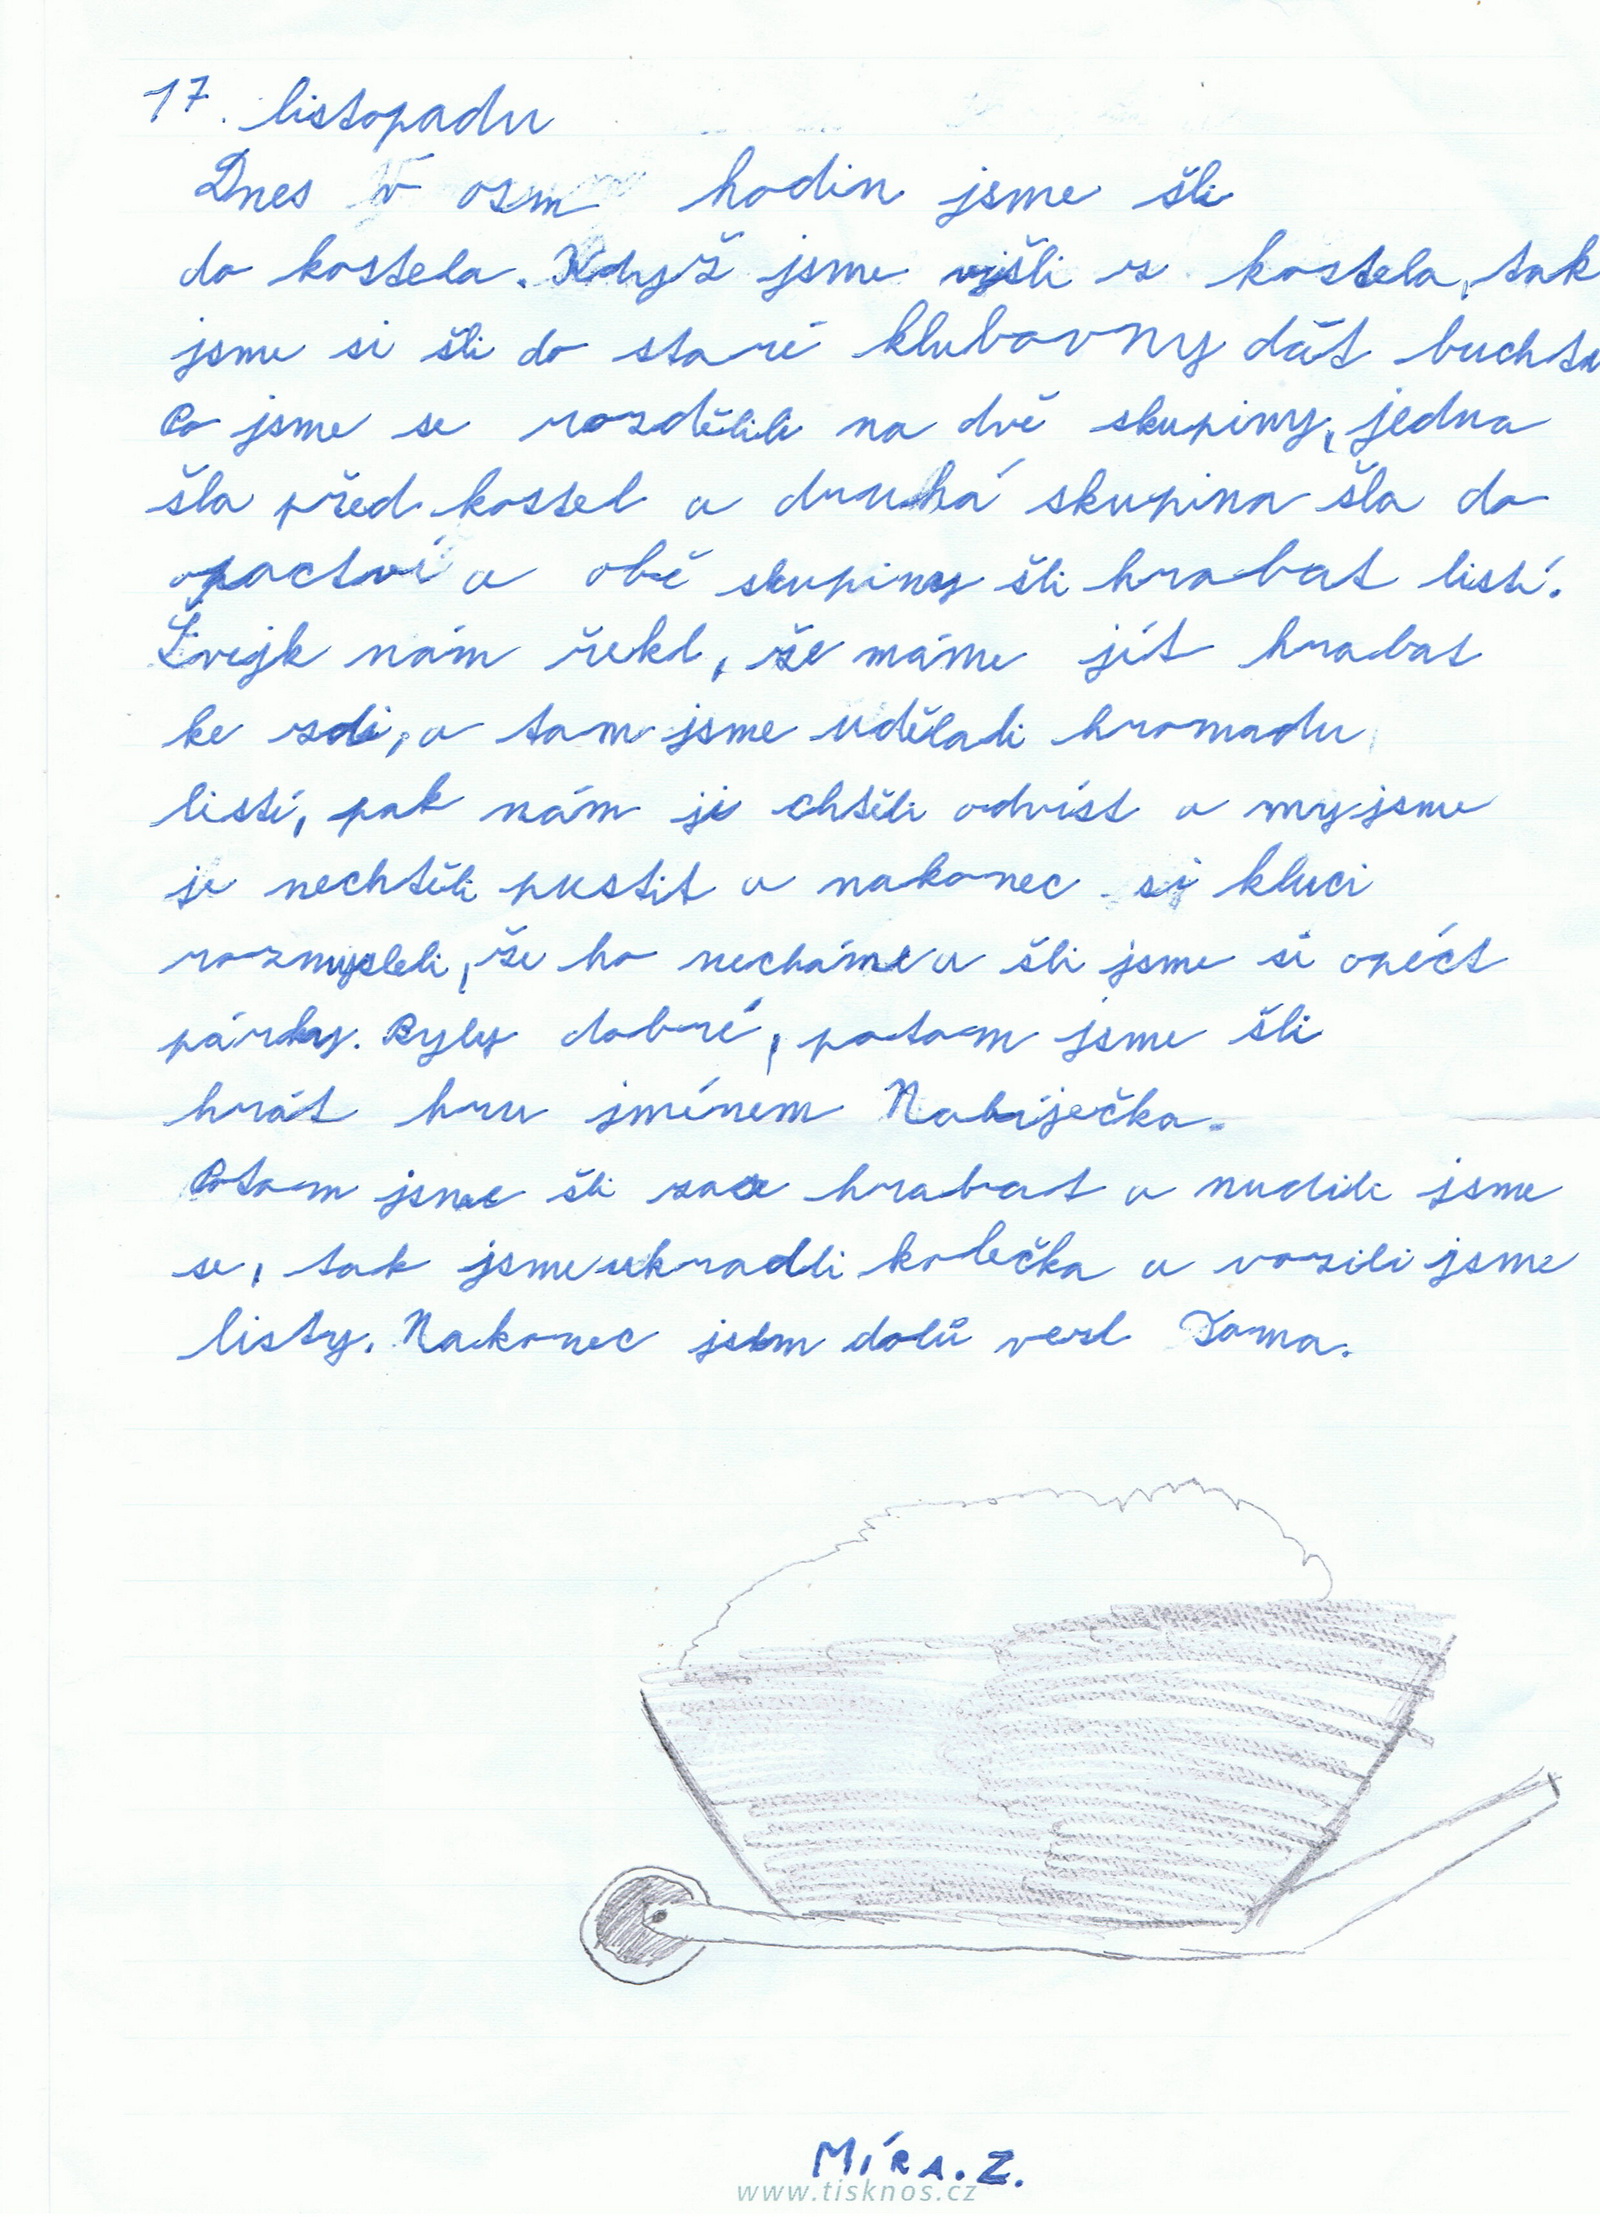 17. listopadu
Dnes v osm hodin jsme šli
do kostela. Když jsme vyšli z kostela, tak
jsme si šli do staré klubovny dát buchtu
Po jsme se rozdělili na dvě skupiny, jedna
šla před kostel a druhá skupina šla do
opactví a obě skupiny šli hrabat listí.
Švejk nám řekl, že máme jít hrabat
ke zdi, a tam jsme udělali hromadu
listí, pak nám ji chtěli odvíst a my jsme
je nechtěli pustit a nakonec si kluci
rozmysleli, že ho necháme a šli jsme si opéct
párky. Byly dobré, potom jsme šli
hrát hru jménem Nabíječka.
Potom jsme šli zase hrabat a nudili jsme
se, tak jsme ukradli kolečka a vozili jsme
listy. Nakonec jsem dolů vezl Toma.
MÍRA.Z.
www.tisknos.cz